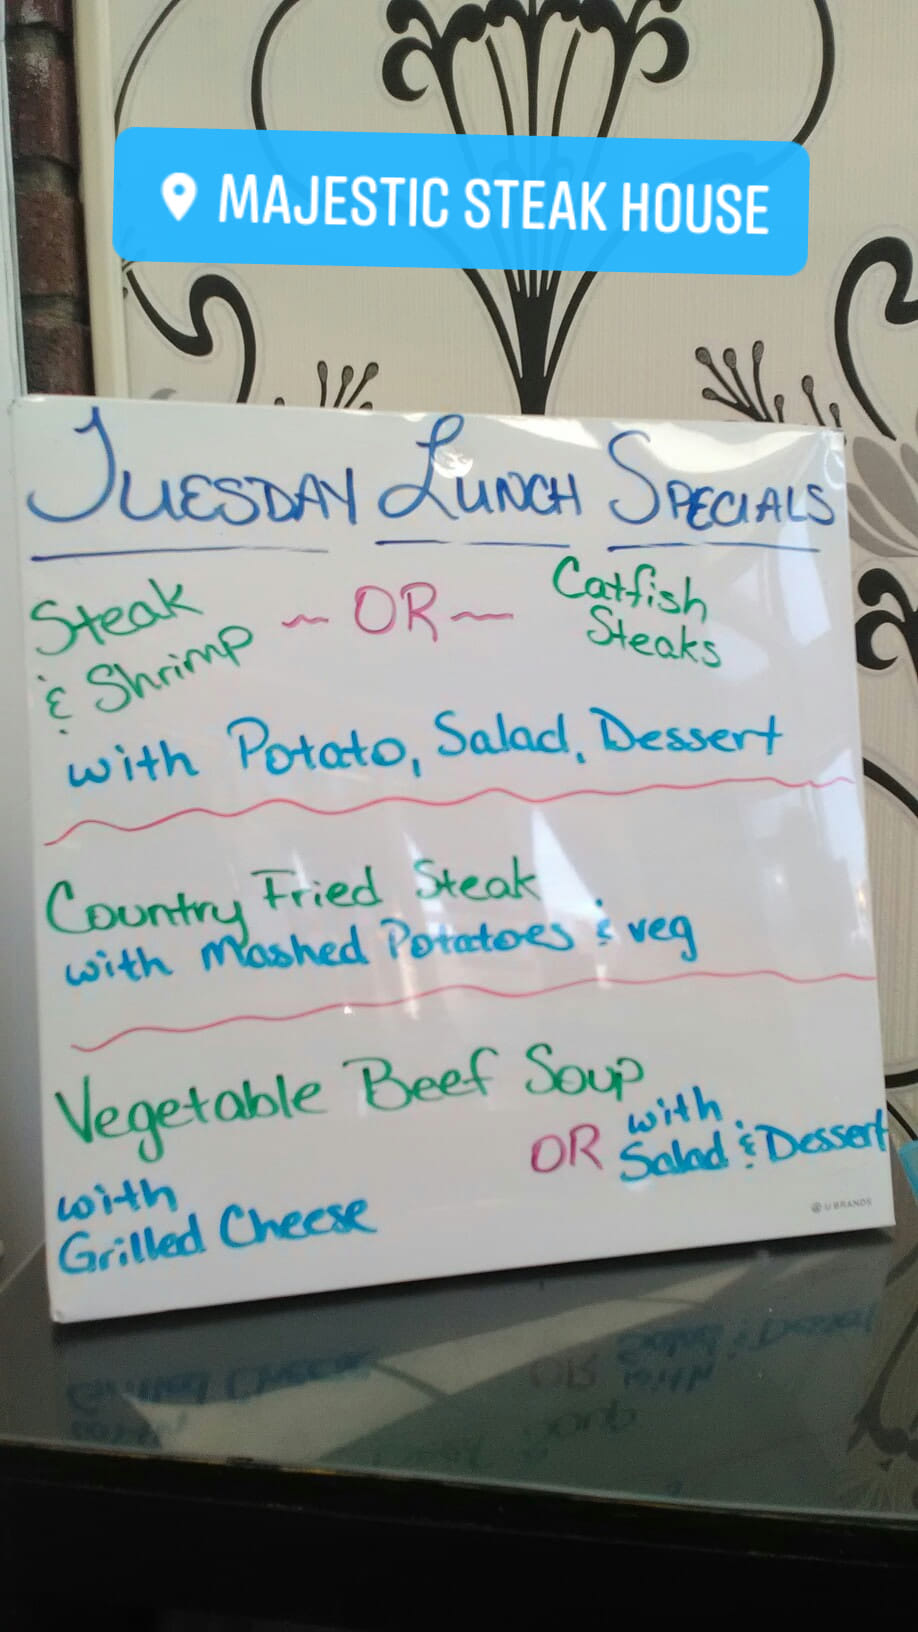 MAJESTIC STEAK HOUSE
TUESDAY LUNCH SPECIALS
Steak
& Shrimp
~ OR ~
Catfish
Steaks
with Potato, Salad, Dessert
Country Fried Steak
with Mashed Potatoes & veg
Vegetable Beef Soup
with
Grilled Cheese
OR
with
Salad & Dessert
U BRANDS